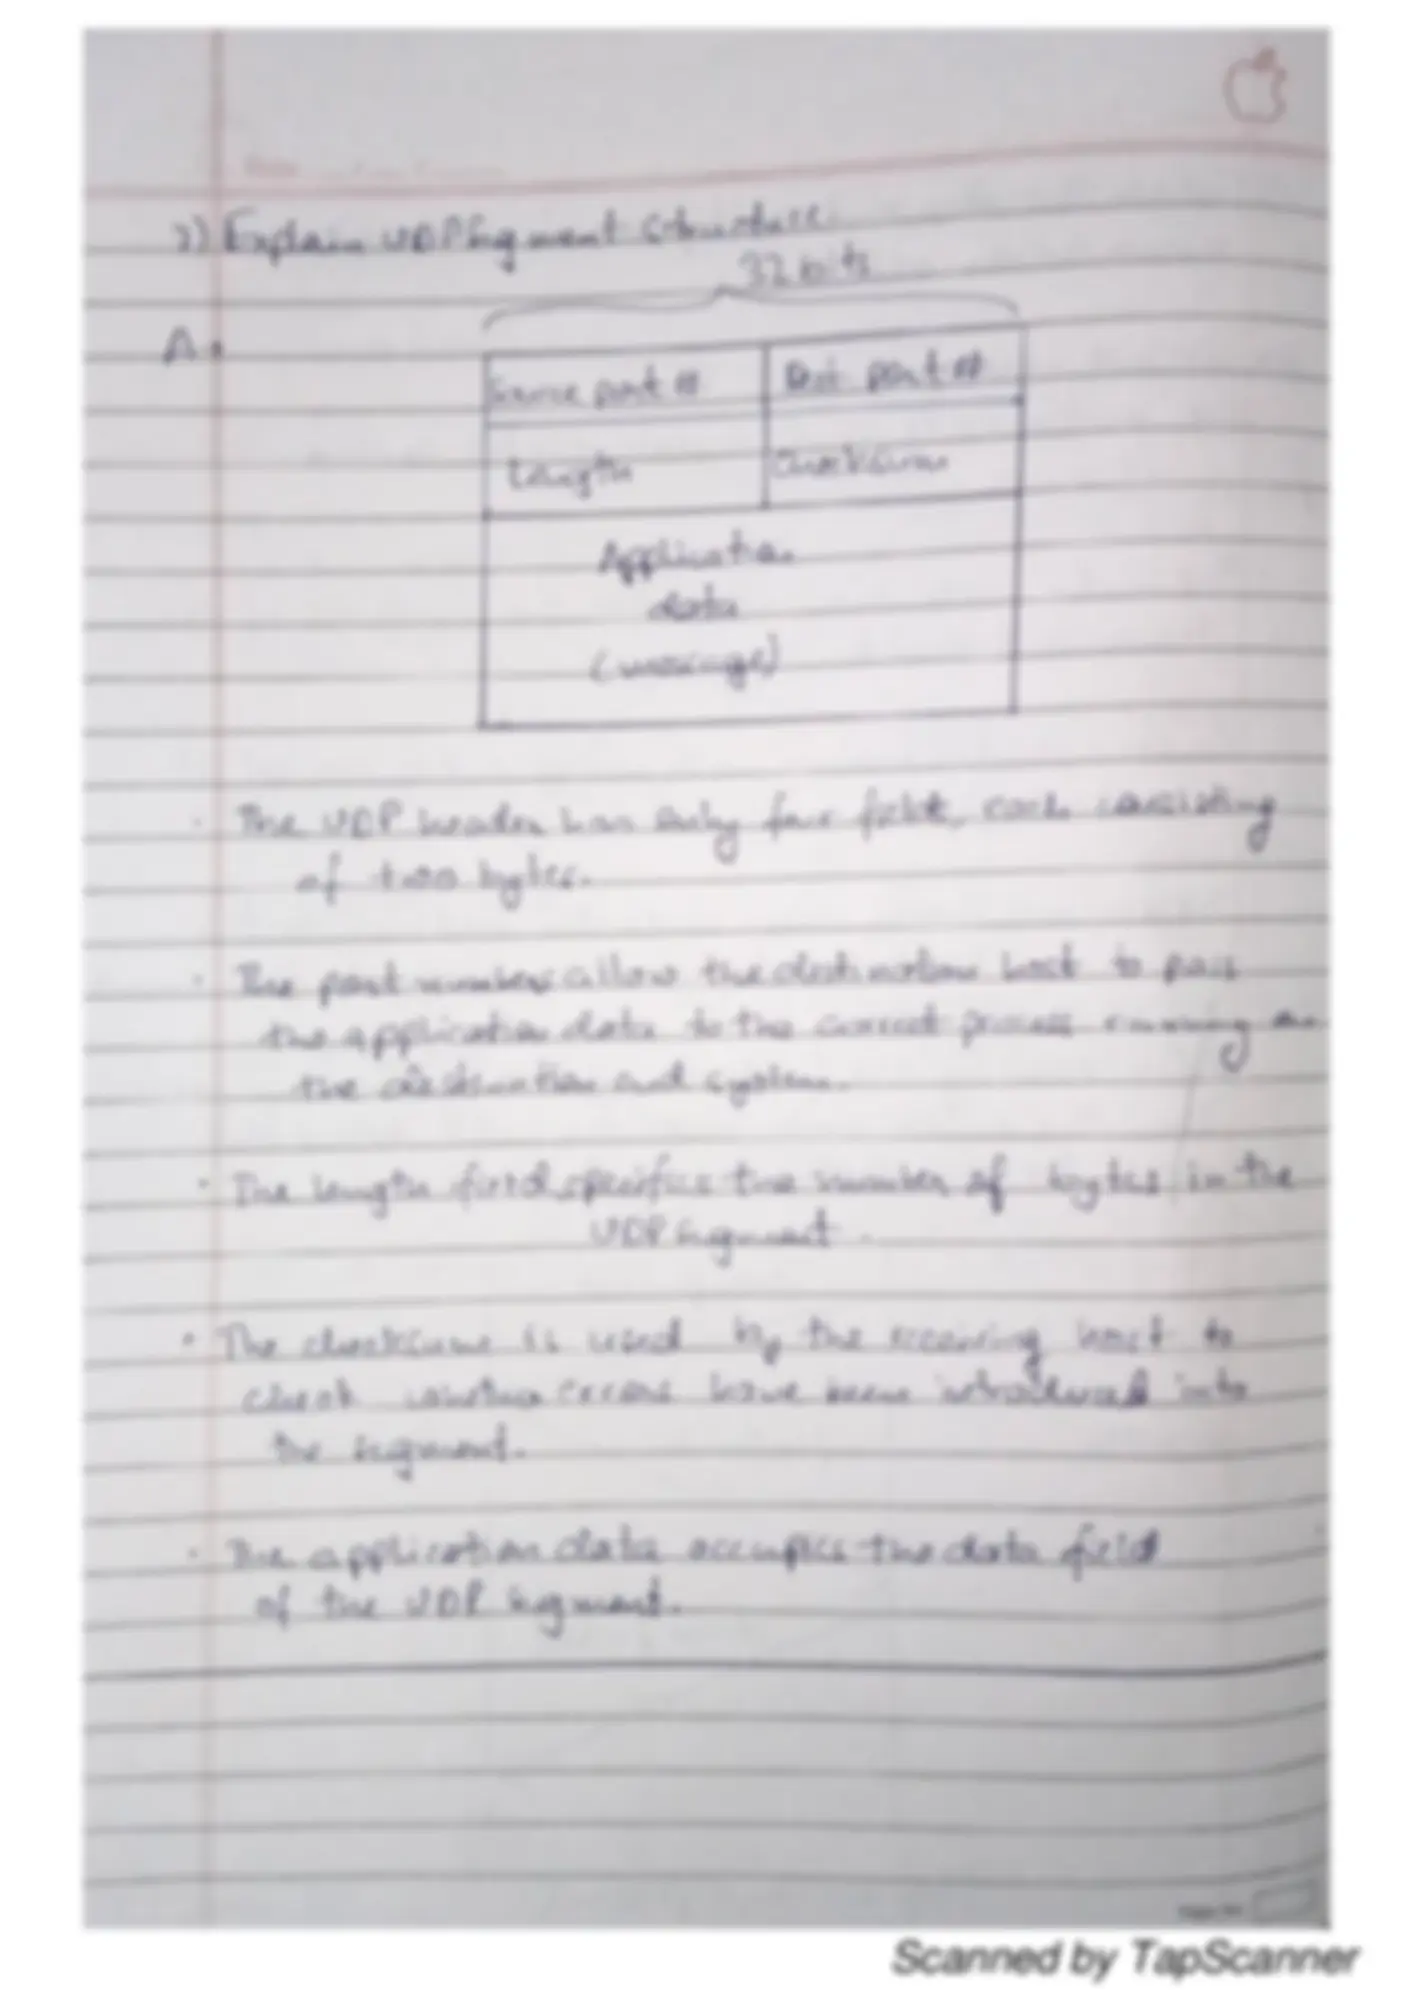 2) Explain UDP Segment structure.
32 bits
A.
Source port # Dest port #
Length Checksum
Application
data
(message)
· The UDP header has only four fields, each consisting
of two bytes.
· The port numbers allow the destination host to pass
the application data to the correct process running on
the destination end system.
· The length field specifies the number of bytes in the
UDP segment.
· The checksum is used by the receiving host to
check whether errors have been introduced into
the segment.
· The application data occupies the data field
of the UDP segment.
Scanned by TapScanner